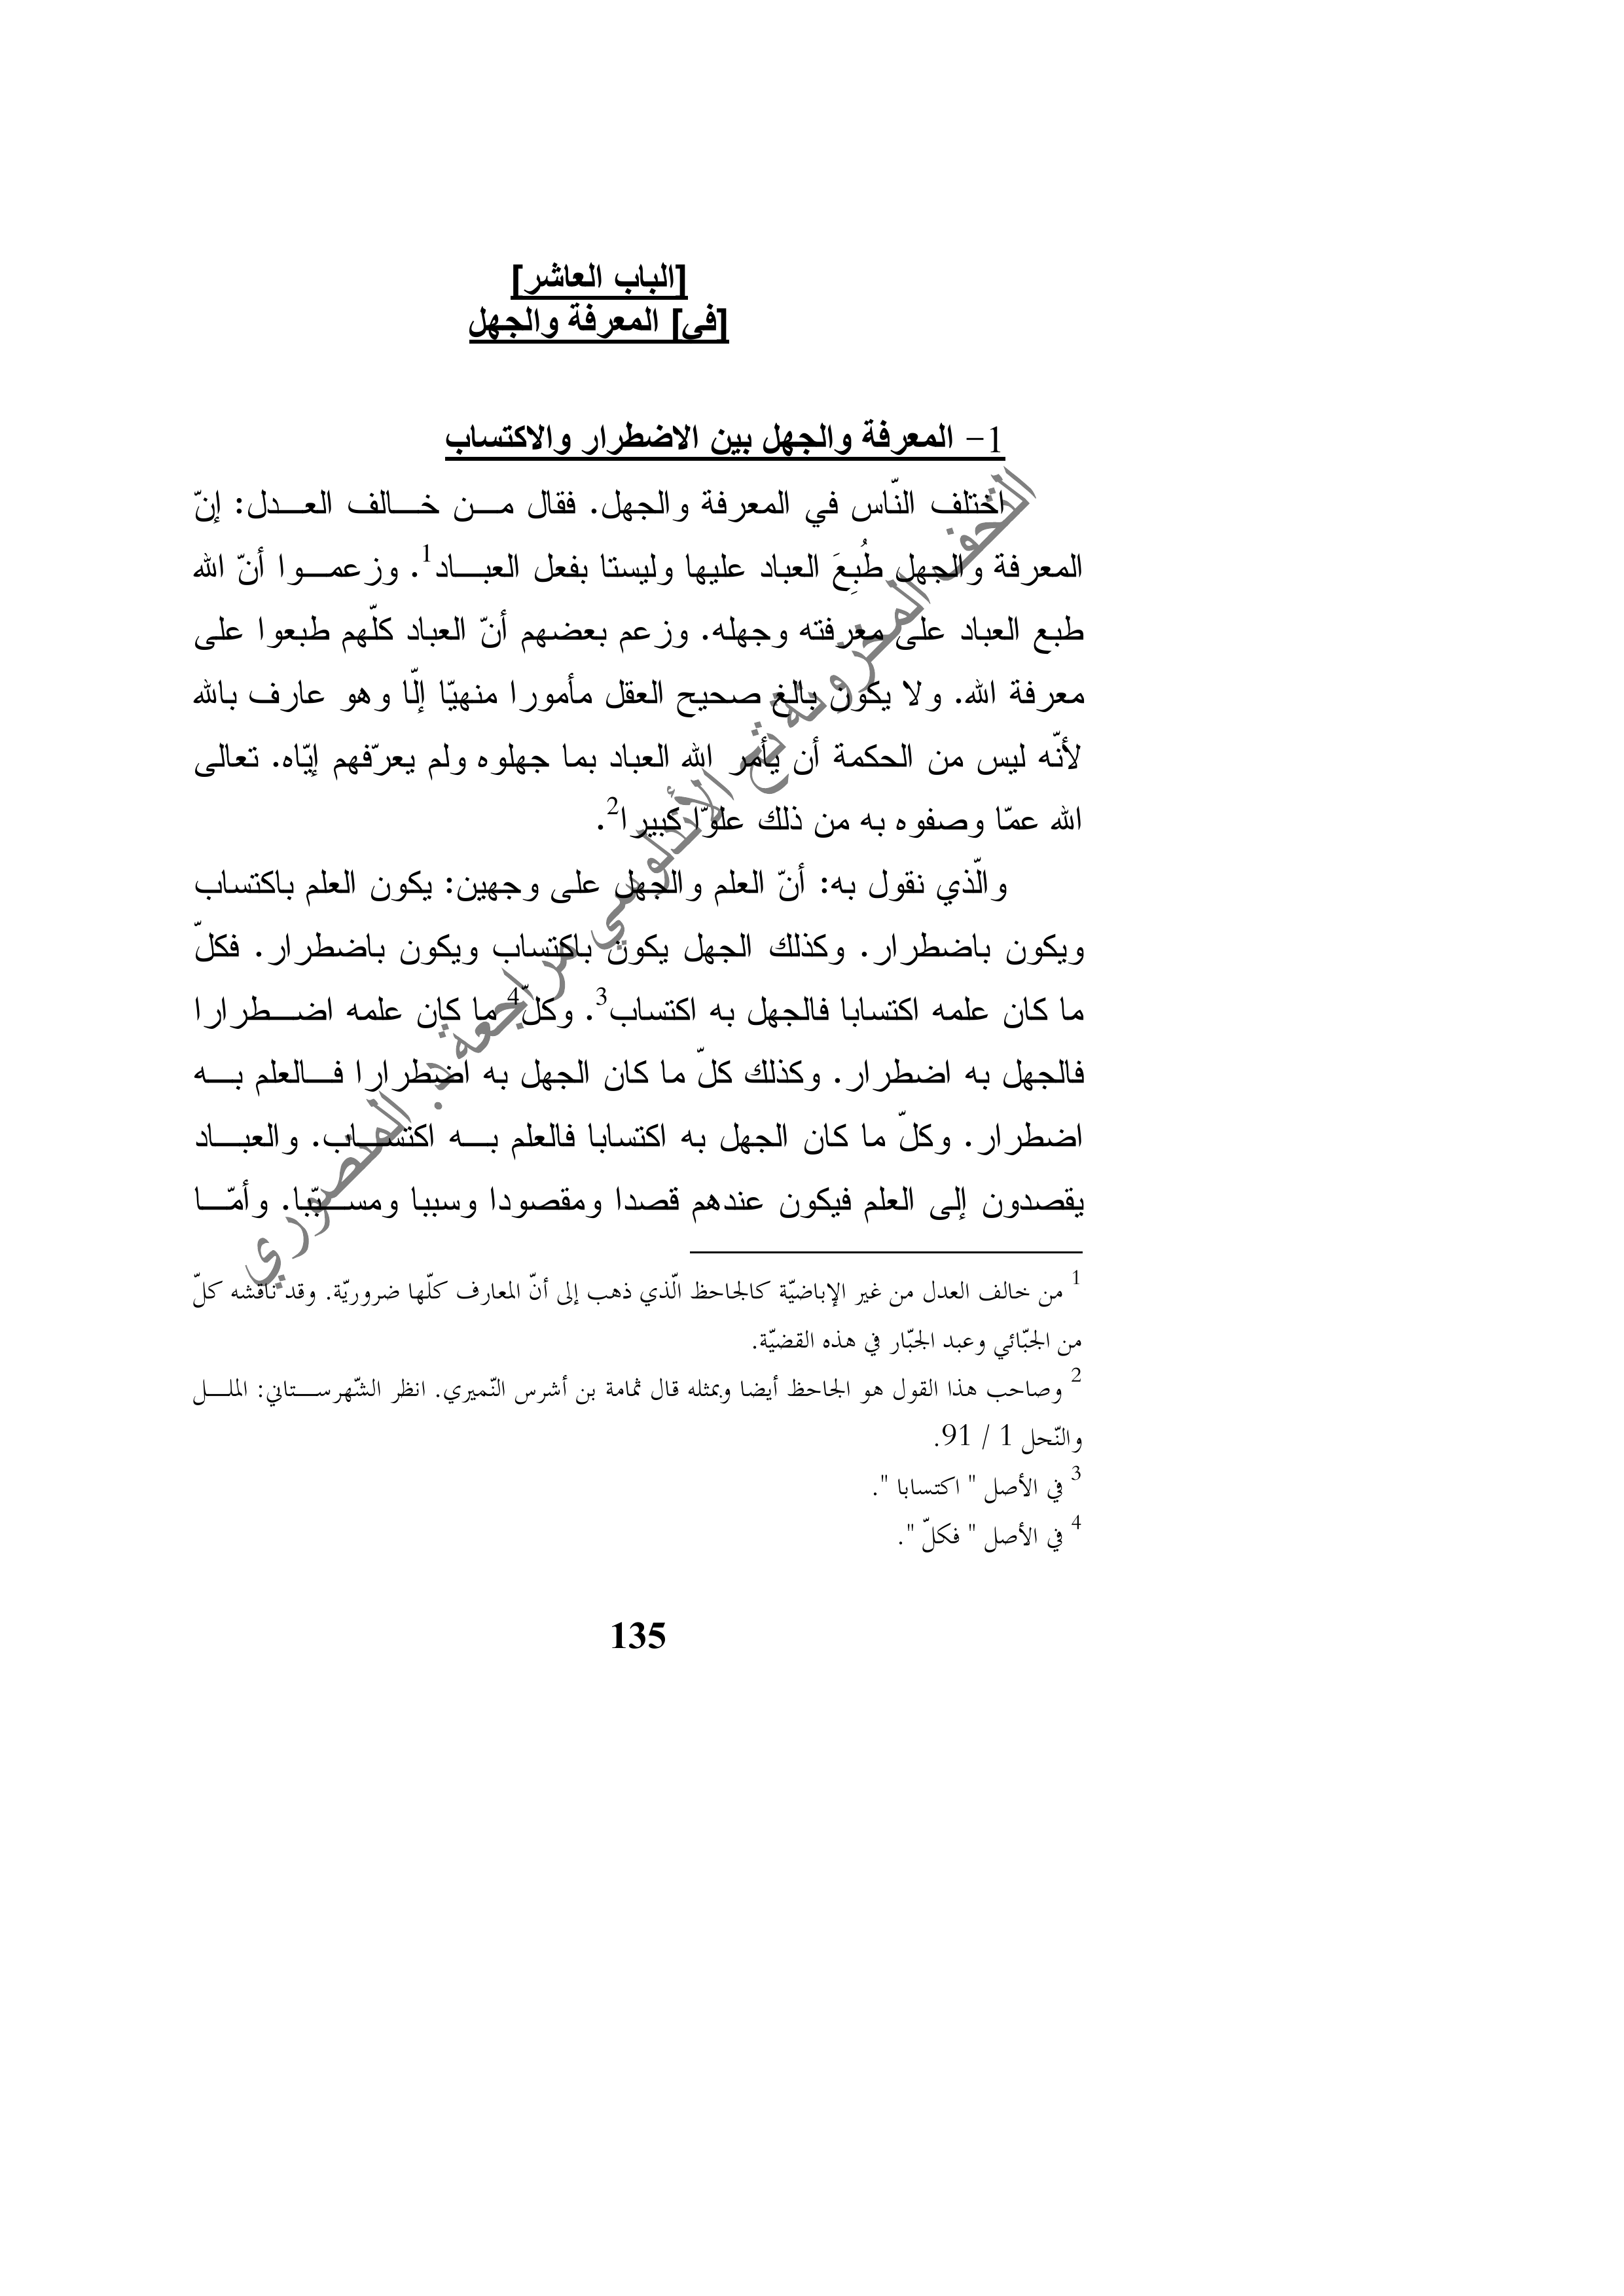 [الباب العاشر]
[في] المعرفة والجهل
1- المعرفة والجهل بين الاضطرار والاكتساب
اختلف النّاس في المعرفة والجهل. فقال من خالف العدل: إنّ
المعرفة والجهل طُبِعَ العباد عليها وليستا بفعل العباد1. وزعموا أنّ الله
طبع العباد على معرفته وجهله. وزعم بعضهم أنّ العباد كلّهم طبعوا على
معرفة الله. ولا يكون بالغ صحيح العقل مأمورا منهيّا إلّا وهو عارف بالله
لأنّه ليس من الحكمة أن يأمر الله العباد بما جهلوه ولم يعرّفهم إيّاه. تعالى
الله عمّا وصفوه به من ذلك علوّا كبيرا2.
والّذي نقول به: أنّ العلم والجهل على وجهين: يكون العلم باكتساب
ويكون باضطرار. وكذلك الجهل يكون باكتساب ويكون باضطرار. فكلّ
ما كان علمه اكتسابا فالجهل به اكتساب3. وكلّ4 ما كان علمه اضطرارا
فالجهل به اضطرار. وكذلك كلّ ما كان الجهل به اضطرارا فالعلم به
اضطرار. وكلّ ما كان الجهل به اكتسابا فالعلم به اكتساب. والعباد
يقصدون إلى العلم فيكون عندهم قصدا ومقصودا وسببا ومسبّبا. وأمّا
1 من خالف العدل من غير الإباضيّة كالجاحظ الّذي ذهب إلى أنّ المعارف كلّها ضروريّة. وقد ناقشه كلّ
من الجبّائي وعبد الجبّار في هذه القضيّة.
2 وصاحب هذا القول هو الجاحظ أيضا وبمثله قال ثمامة بن أشرس النّميري. انظر الشّهرستاني: الملل
والنّحل 1 / 91.
3 في الأصل " اكتسابا ".
4 في الأصل " فكلّ ".
135
التحف المخزونة تح الأندلوسي مراجعة د. المنصوري